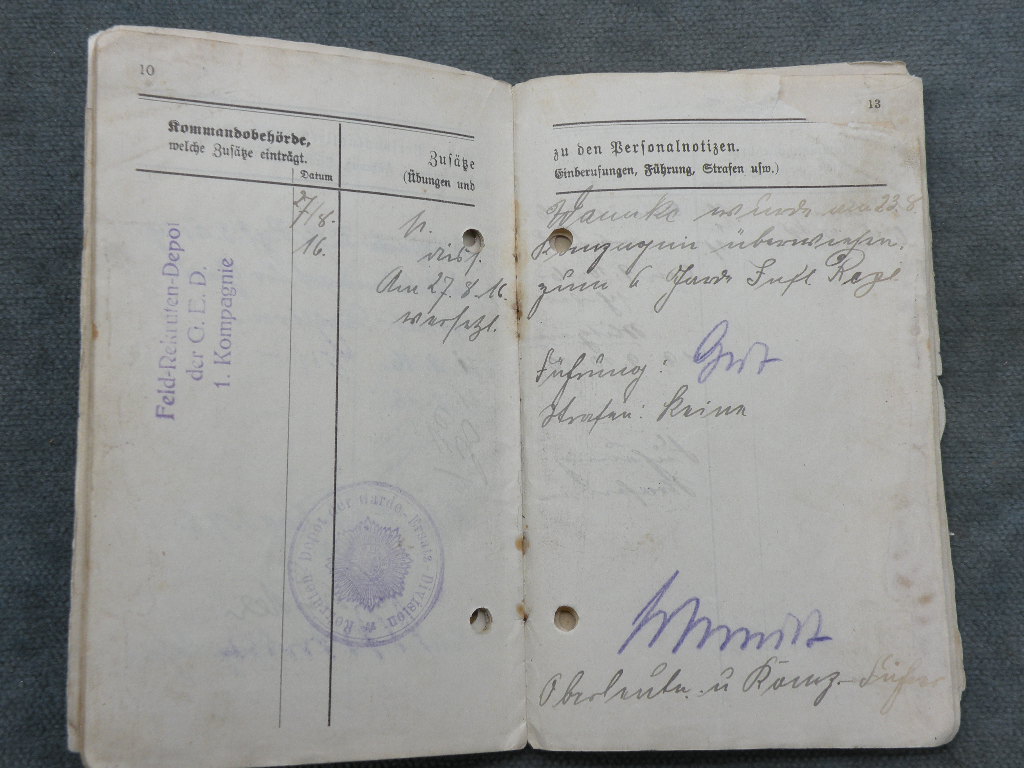 10
Kommandobehörde,
welche Zusätze einträgt.
Datum
Zusätze
(Übungen und
Feld-Rekruten-Depot
der G. E. D.
1. Kompagnie
27/8.
16.
Am 27.8.16.
versetzt.
Rekruten-Depot der Garde-Ersatz-Division.
13
zu den Personalnotizen.
Einberufungen, Führung, Strafen usw.)
wurde am 23.8.
überwiesen.
zum 6 Garde Inft. Regt
Führung: Gut
Strafen: keine
Schmidt
Oberleutn. u Komp.-Führer